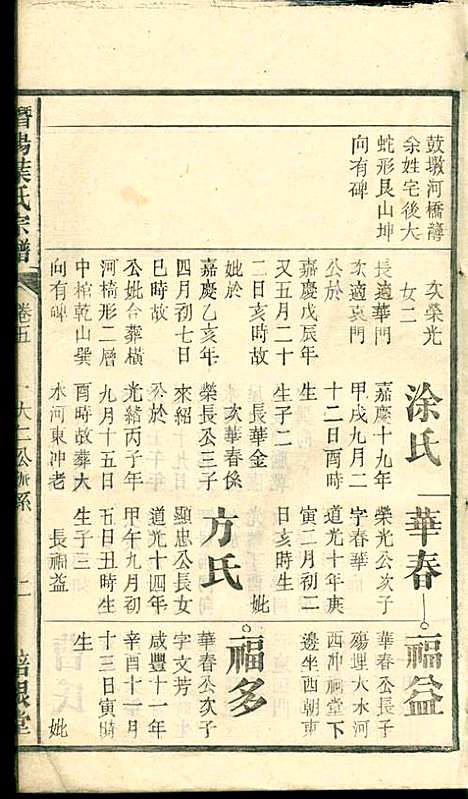 鼓墩河橋薄
余姓宅後大
蛇形艮山坤
向有碑
次榮光
女二
長適華門
次適袁門
公於
嘉慶戊辰年
又五月二十
二日亥時故
妣於
嘉慶乙亥年
四月初七日
巳時故
公妣合葬橫
河椅形二層
中棺乾山巽
向有碑
涂氏
嘉慶十九年
甲戌九月二
十二日酉時
生
生子二
長華金
次華春係
榮長公三子
來紹
公於
光緒丙子年
九月十五日
酉時故葬大
水河東冲老
華春
榮光公次子
字春華
道光十年庚
寅二月初二
日亥時生
妣
方氏
顯忠公長女
道光十四年
甲午九月初
五日丑時生
生子三
長福益
福益
華春公長子
殤埋大水河
西冲祠堂下
邊坐西朝東
福多
華春公次子
字文芳
咸豐十一年
辛酉十一月
十三日寅時
生
妣
葉氏宗譜
卷五
大仁公
系
二